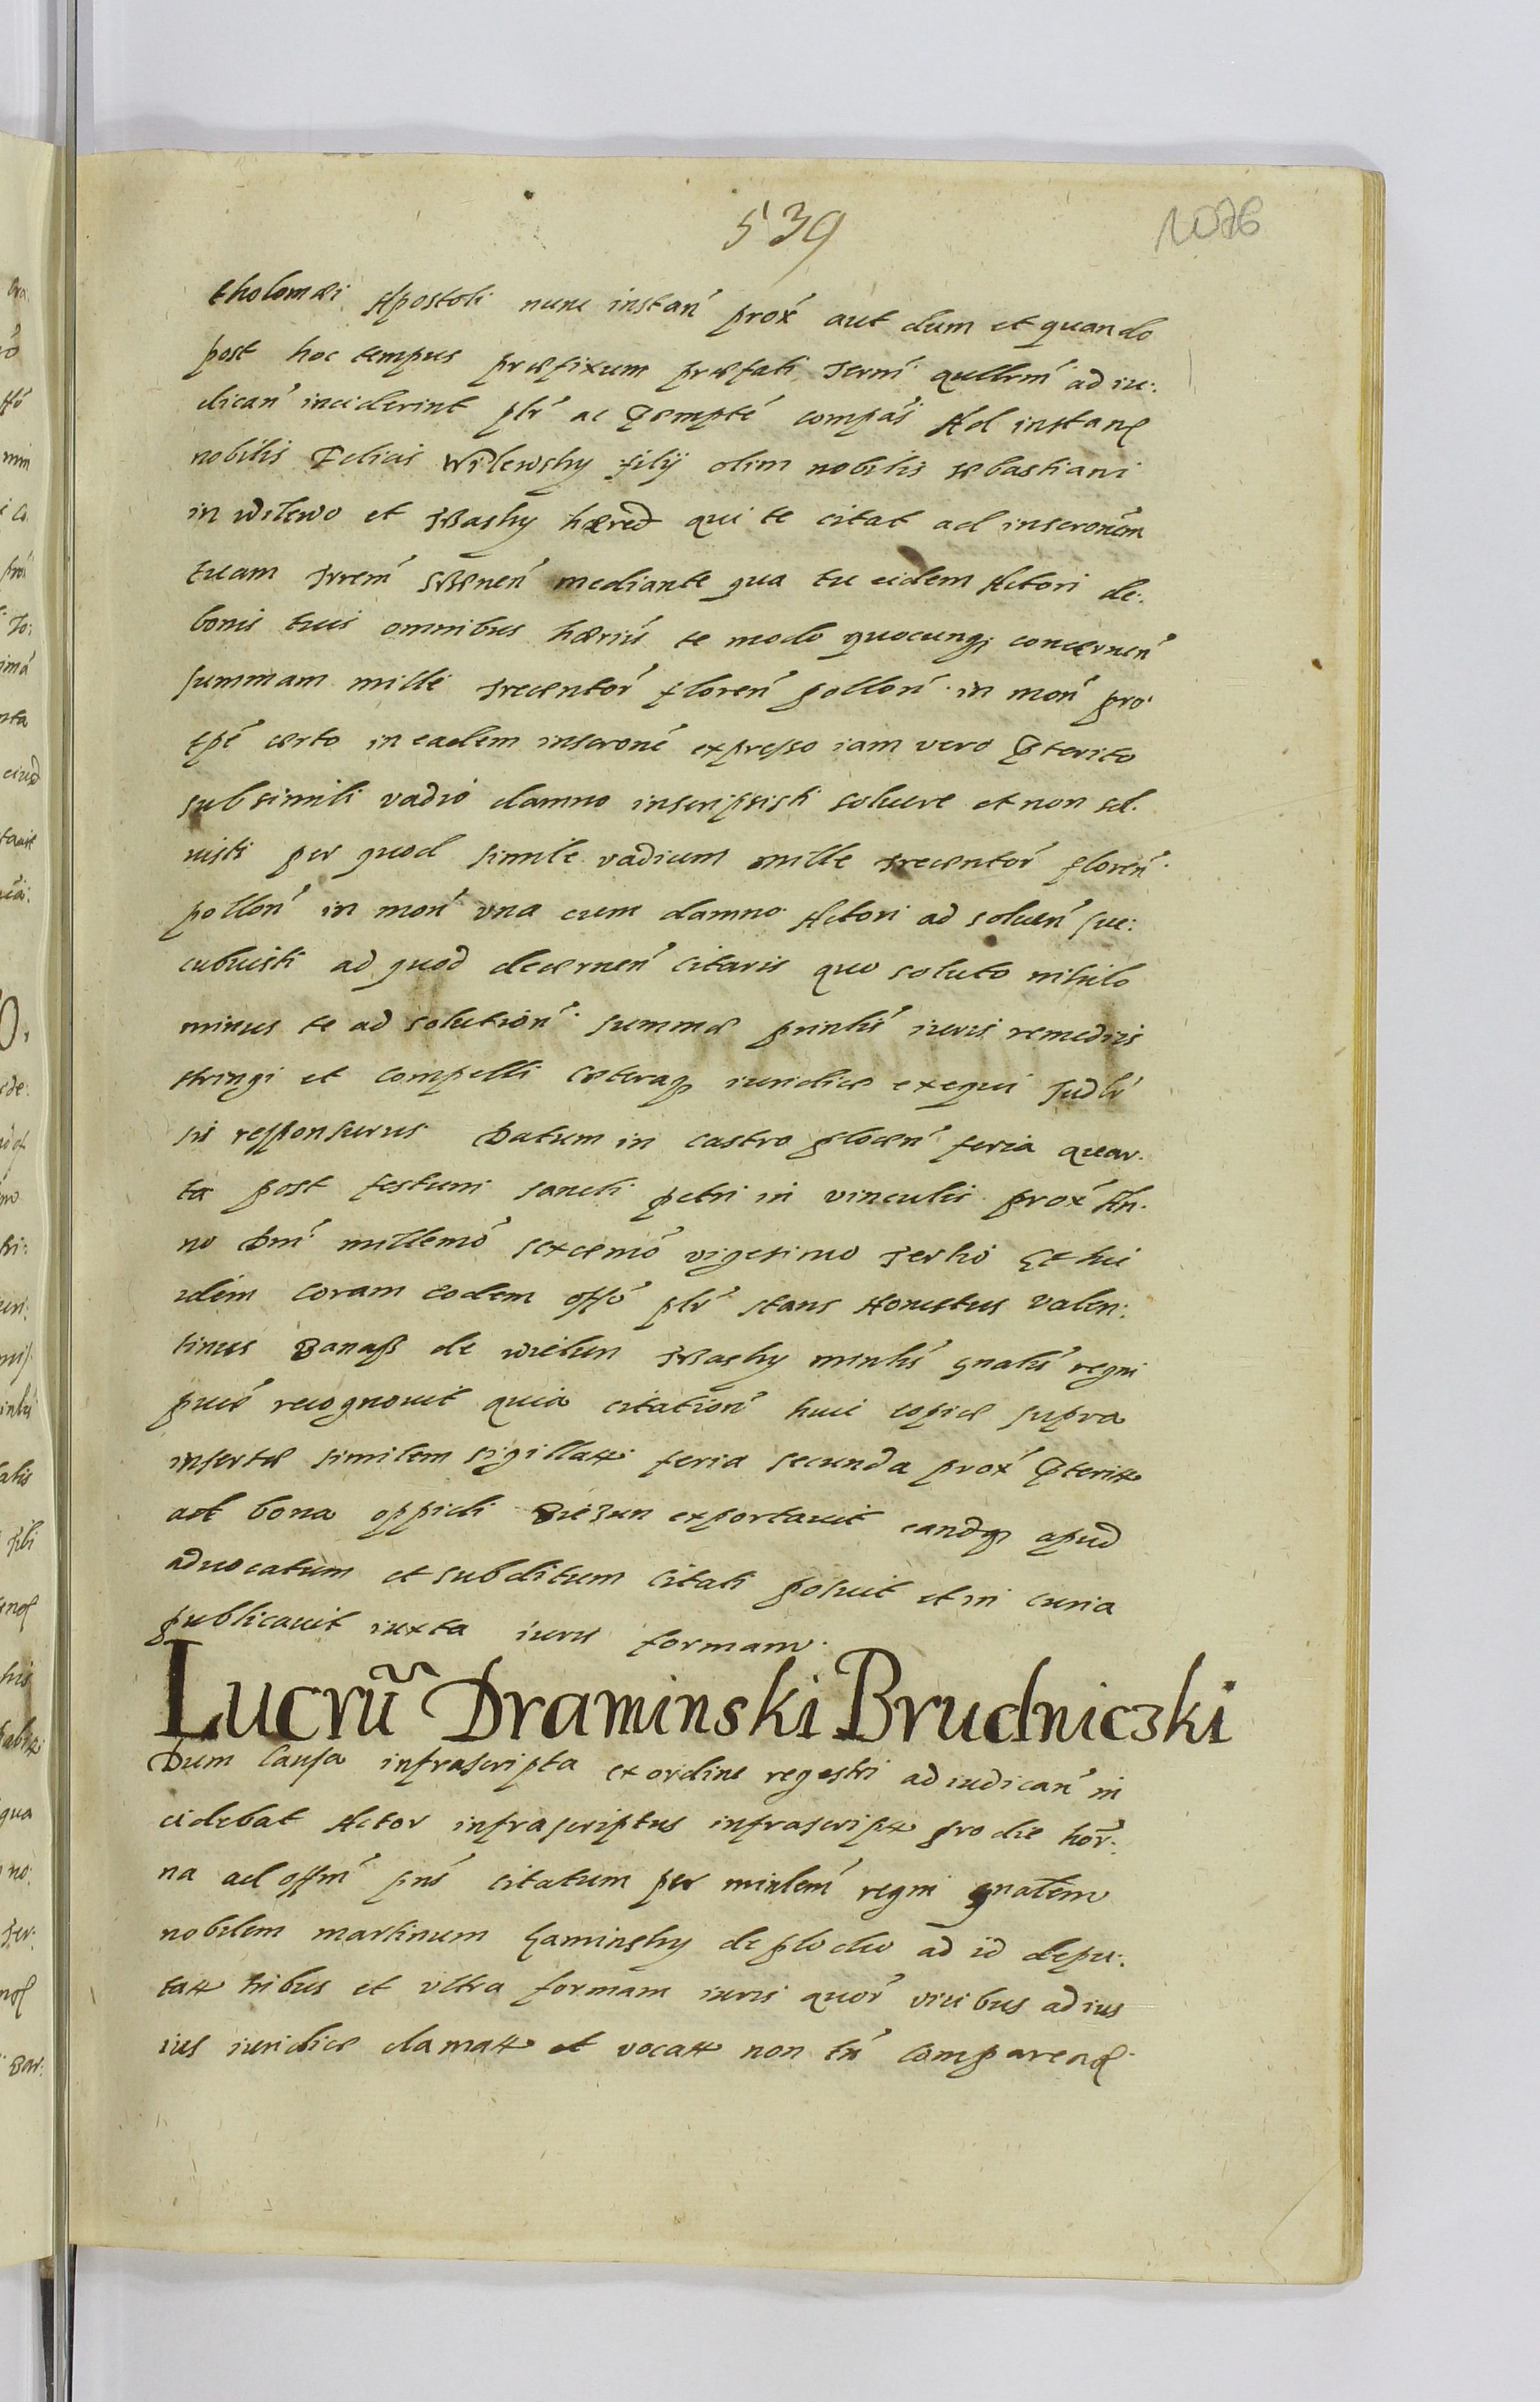 539
1076
tholomæi Apostoli nunc instan̄ prox̄ aut dum et quando
post hoc tempus præfixum præfati Term̄ qullrm̄ ad iu:
dican̄ inciderint plr̄ ac ꝑempte compās Ad instanꝭ
nobilis Felicis Wilewsky filij olim nobilis Sebastiani
in Wilewo et Wasky hæred qui te citat ad inscronem
tuam mediante qua tu eidem Actori de:
bonis tuis omnibus hæriis te modo quocunqȝ concernen̄
summam mille Trecentor̄ floren̄ pollon̄ in mon̄ pro
tpe certo in eadem inscrone expresso iam vero ꝓterito
sub simili vadio damno inscripsisti soluere et non sol:
uisti per quod simile vadium mille Trecentor̄ floren̄
pollon̄ in mon̄ vna cum damno Actori ad soluen̄ suc:
cubuisti ad quod decernen̄ citaris quo soluto nihilo
minus te ad solution̄ summæ prinlis iuris remediis
stringi et compelli cæteraqȝ iuridice exequi Judlr̄
sis responsurus Datum in castro plocen̄ feria quar:
ta post festum sancti petri in vinculis prox̄ An:
no Dni millemo sexcemo vigesimo Tertio Et hic
idem coram eodem offo plr̄ stans Honestus Valen:
tinus Banaß de wielun Wasky minlis gnalis regni
puis recognouit quia citation̄ huic copiæ supra
insertæ similem sigillatt feria secunda prox̄ ꝓteritt
ad bona oppidi Biezun exportauit eandqȝ apud
aduocatum et subditum citati posuit et in curia
publicauit iuxta iuris formam.
Lucrũ Draminski Brudniczki
Dum Causa infrascripta ex ordine regestri ad iudican̄ in
cidebat Actor infrascriptus infrascriptt pro die hor:
na ad offm̄ pns̄ citatum per minlem̄ regni gnalem
nobilem martinum Kaminsky de plocko ad id depu:
tatt tribus et vltra formam iuris quor̄ vicibus ad ius
ius iuridice clamatt et vocatt non tn̄ comparenꝭ